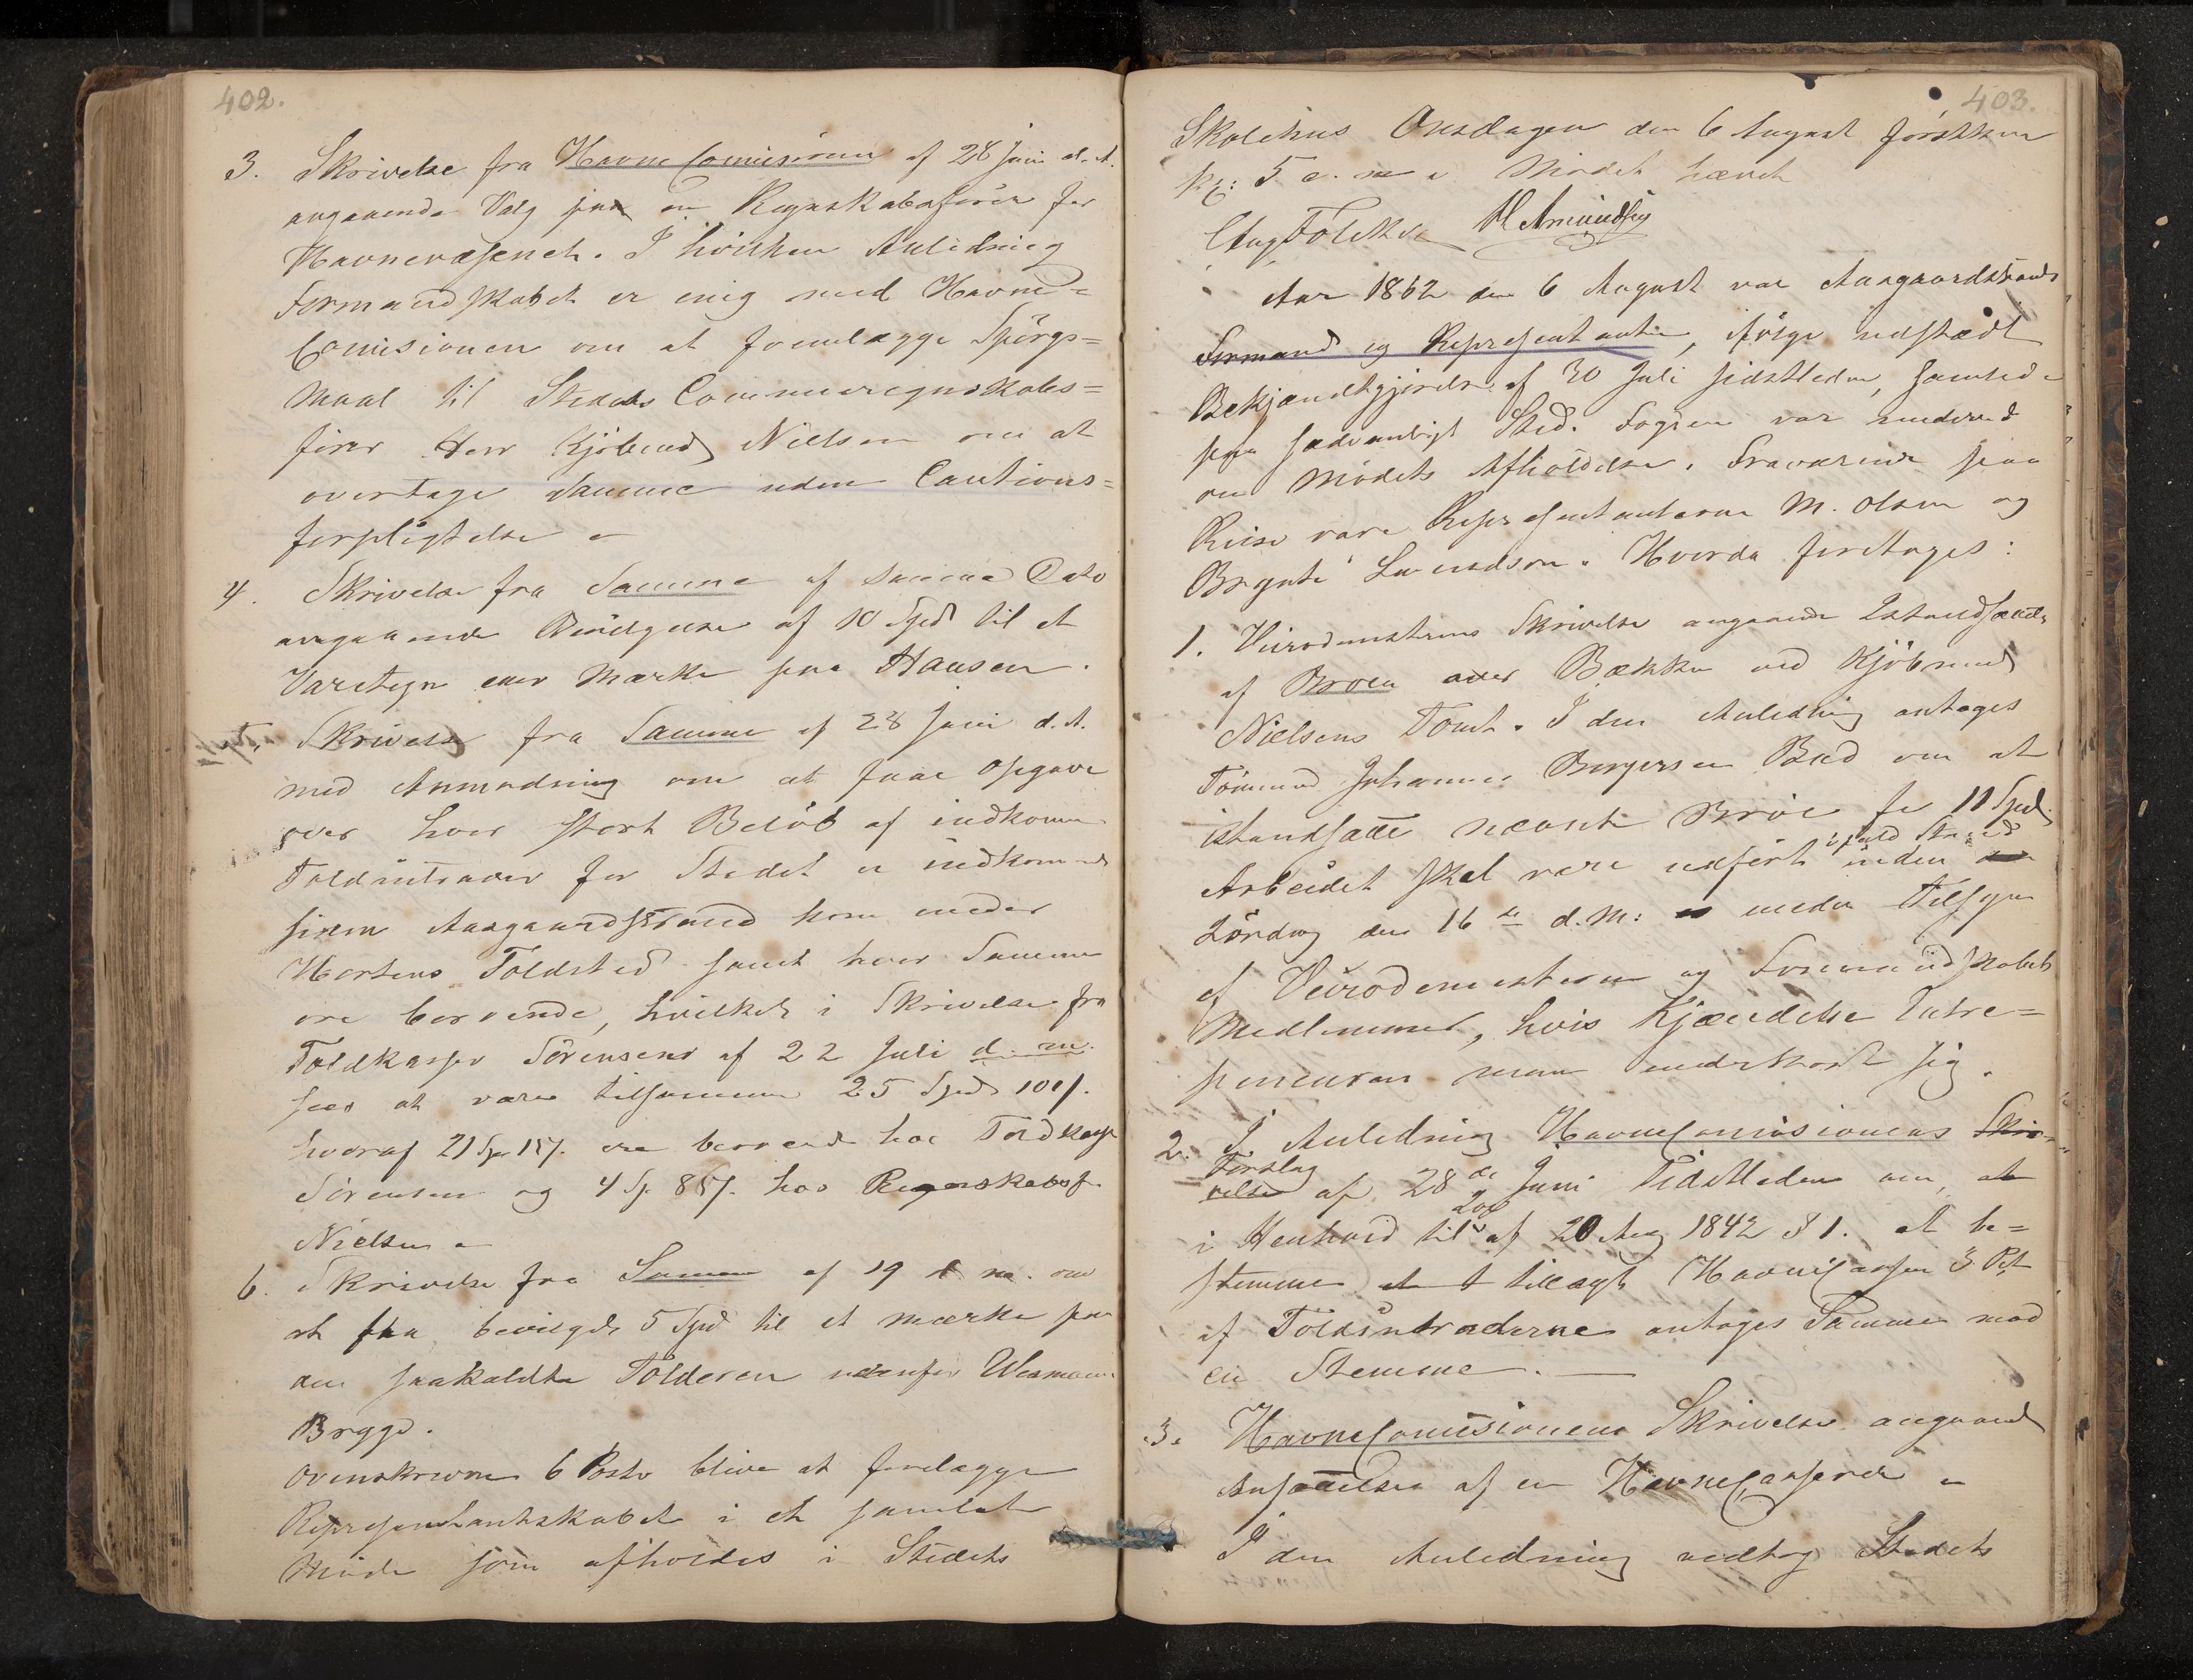 402.
3. Skrivelse fra Havne Comisionen af 28 Juni d. A.
angaaende Valg paa en Regnskabsfører for
Havnevæsenet. I hvilken Anledning
Formandskabet er enig med Havne=
Comisionen om at fremlægge Spørgs=
maal til Stedets Communeregnskabs=
fører Herr Kjøbmd Nielsen om at
overtage Samme uden Cautions=
forpligtelse
4. Skrivelse fra Samme af samme Dato
angaaende af 10 Spd til et
Varetegn eller Mærke paa Hansen.
Skrivelse fra Samme af 28 Juni d. A.
med Anmodning om at faae Opgave
over hvor stort Beløb af indkomne
Toldintrader for Stedet er indkommet
siden Aasgaardstrand kom under
Hortens Toldsted samt hvor Samme
ere beroende, hvilket i Skrivelse fra
Toldkasser Sørensens af 22 Juli d. m.
sees at være tilsammen 25 Spd 101 s.
hvoraf 21 Sp 15 s. ere beroende hos Toldkass
Sørensen og 4 Sp. 85 s. hos Regnskabsf
Nielsen
6. Skrivelse fra Samme af 19 d. m. om
at faa bevilgede 5 Spd til et Mærke paa
den saakaldte Tolderen udenfor
Brygge.
Ovenskrevne 6 Poster blive at forelægge
Representantskabet i et samlet
Møde som afholdes i Stedets
403.
Skolehus Onsdagen den 6 August førstkm
kl: 5 e. m. Mødet hævet
Aug Foleksen H Amundsen
Aar 1862 den 6 August var Aasgaardstrands
Formænd og Representanter, ifølge udstædt
Bekjændtgjørelse af 30 Juli sidstleden, samlede
paa sædvanligt Sted. Fogden var underret
om Mødets Afholdelse. Fraværende paa
Reise vare Representanterne M. Olsen og
Brynte Lavendson. Hvorda foretoges:
1. Veirodemesterens Skrivelse angaaende Istandsættelse
af Broen over Bækken ved Kjøbmnd
Nielsens Tomt. I den Anledning antoges
Tømmmd Johannes Borgersen Bud om at
istandsætte nævnte Broe for 11 Spd.
Arbeidet skal være udført inden
Lørdag den 16 de d. M: under Tilsyn
af Veirodemesteren og Formandskabets
Medlemmer, hvis Kjændelse Entre=
preneuren maa underkaste sig.
2. I Anledning HavneComisionens Skri=
velse Forslag af 28 de Juni sidstleden om, at
i Henhold til Lov af 20 Aug 1842 § 1. at be=
stemme tillagt HavneCassen 3 Pct
af Toldintraderne antoges Samme mod
en Stemme.
3. HavneComisionens Skrivelse angaaende
Ansættelse af en HavneCasserer
I den Anledning vedtog Stedets